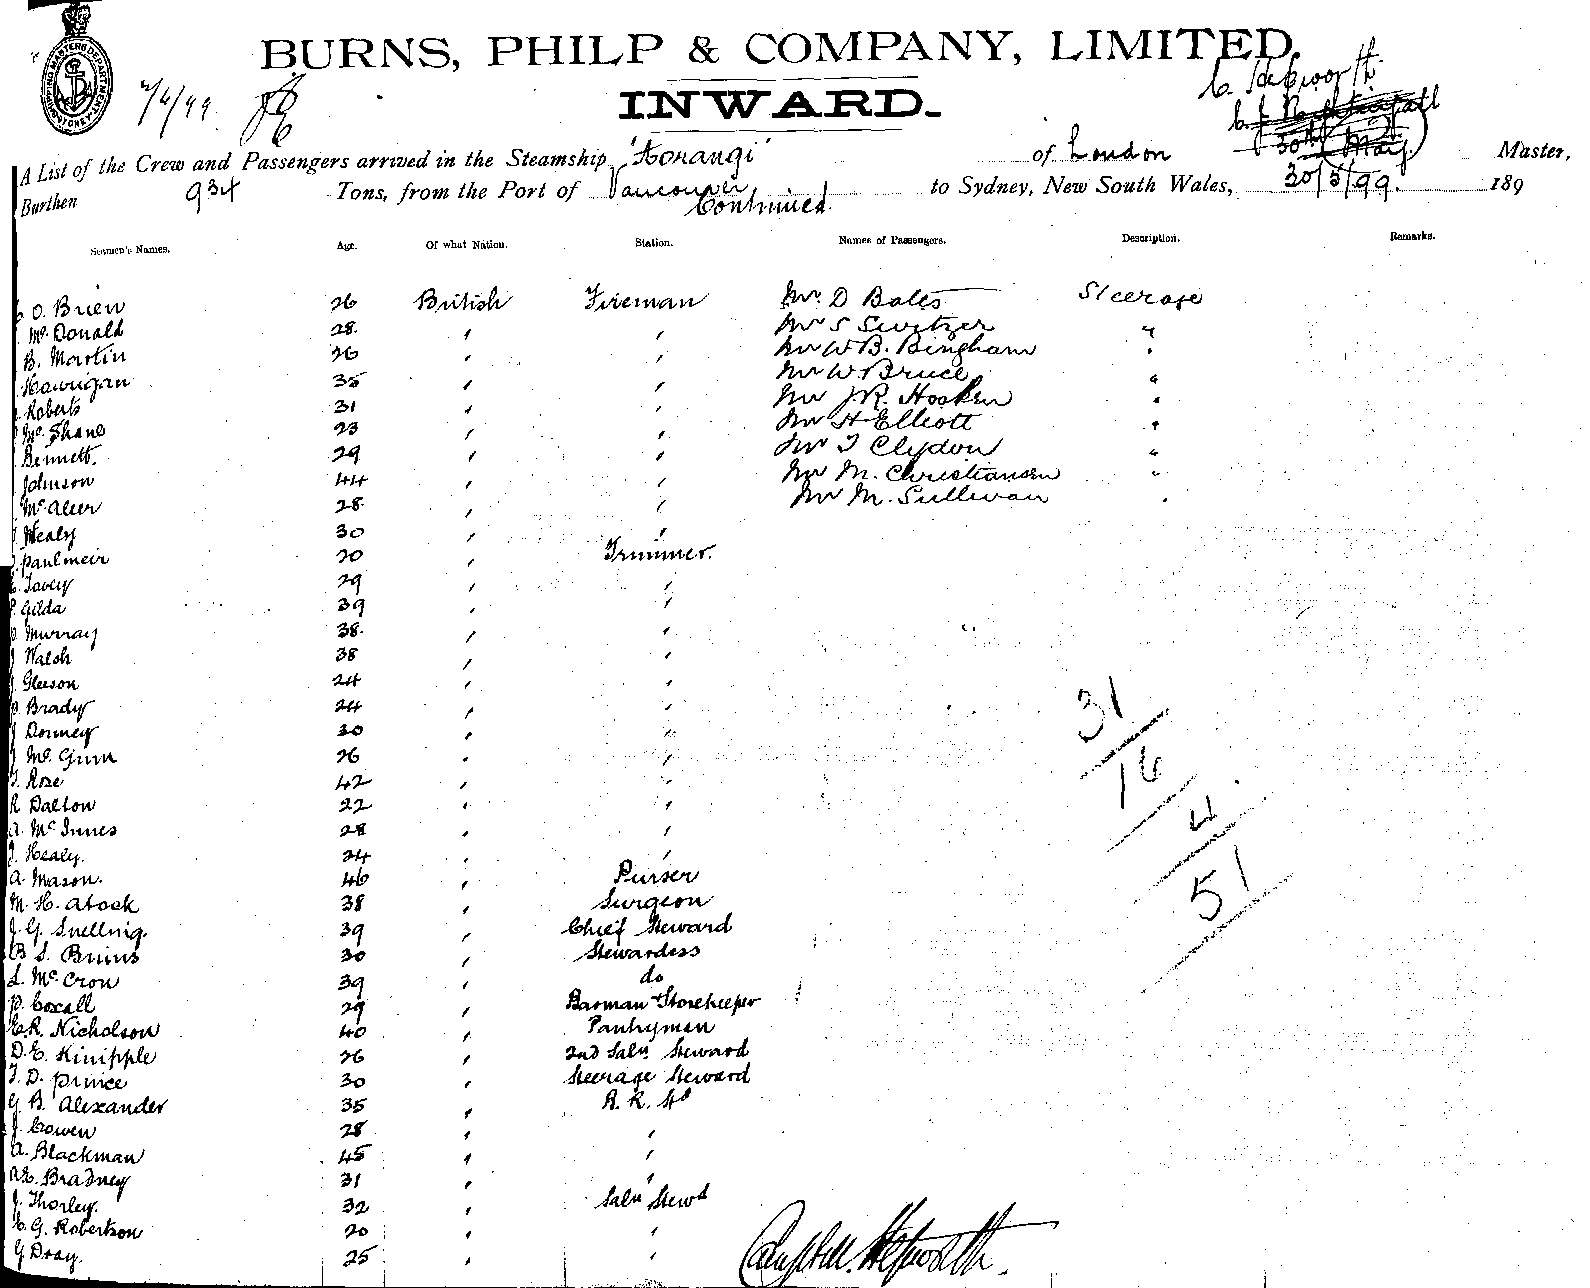 BURNS, PHILP & COMPANY, LIMITED.
INWARD.
C. Hepworth
30th May
A List of the Crew and Passengers arrived in the Steamship "Aorangi" of London Master,
Burthen 934 Tons, from the Port of Vancouver to Sydney, New South Wales, 30/5/99. 189
Continued
Seamen's Names. Age. Of what Nation. Station. Names of Passengers. Description. Remarks.
O. Brien 26 British Fireman Mr. D Bates Steerage
Mc. Donald 28 " " Mr S Switzer "
B. Martin 26 " " Mr W. B. Bingham "
35 " " Mr W. Bruce "
Roberts 31 " " Mr J. R. Hooken "
Mc. Shane 23 " " Mr H Elliott "
Bennett. 29 " " Mr T Clydon "
Johnson 44 " " Mr M. Christiansen "
Mc. Aleer 28 " " Mr M. Sullivan "
Healy 30 " "
Paulmeir 20 " Trimmer.
Tovey 29 " "
P. Gilda 39 " "
Murray 38 " "
J Walsh 38 " "
J. Gleeson 24 " "
Brady 24 " "
J Dorney 30 " "
J Mc. Gunn 26 " "
T. Rose 42 " "
R Dalton 22 " "
A. Mc Innes 28 " "
J. Healy. 24 " "
A. Mason. 46 " Purser
M. H. Atock 38 " Surgeon
J. G. Snelling. 39 " Chief Steward
B S. Bruins 30 " Stewardess
L. Mc. Cron 39 " do
P. Coxall 29 " Barman & Storekeeper
E. R. Nicholson 40 " Pantryman
D. E. Kinipple 26 " 2nd Saln Steward
T. D. Prince 30 " Steerage Steward
G B. Alexander 35 " B. R. Sd
J. Cowen 28 " "
A. Blackman 45 " "
A. E. Bradney 31 " "
J. Thorley. 32 " Saln Stewd
C. G. Robertson 20 " "
G Dray. 25 " "
31
16
4
51
Campbell Hepworth